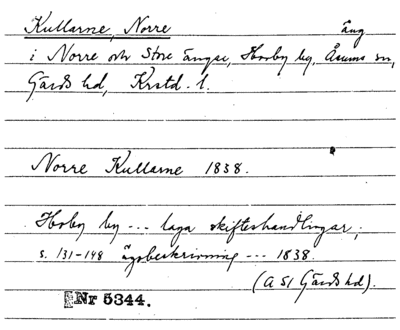 Kullarne, Norre äng
i Norre och Store ängar, Horby by, Åsums sn,
Gärds hd, Krstd. l.
Norre Kullarne 1838.
Horby by --- laga skifteshandlingar,
s. 131-148 ägobeskrivning --- 1838.
(A 51 Gärds hd).
Nr 5344.